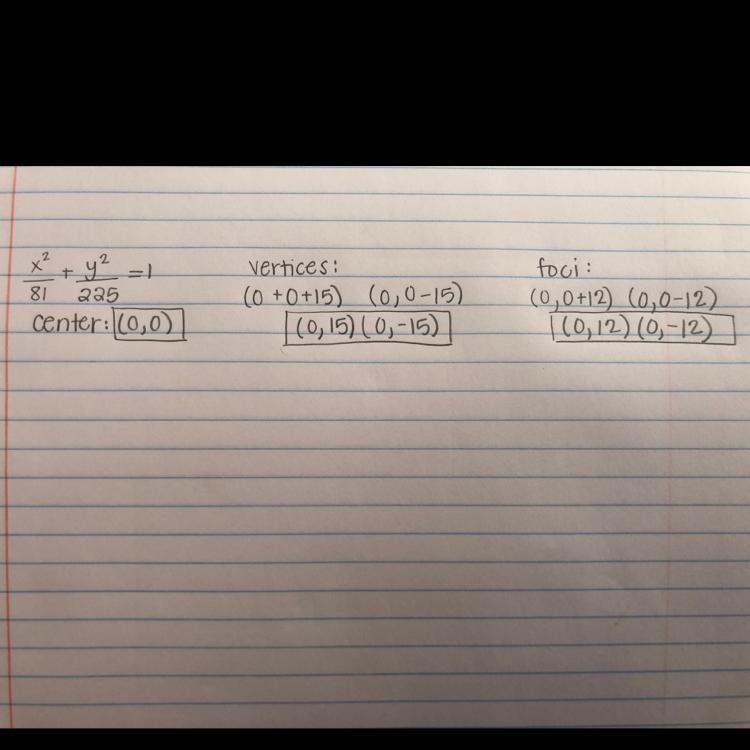 x²/81 + y²/225 = 1
center: (0,0)
vertices:
(0 +0+15) (0,0-15)
(0,15) (0,-15)
foci:
(0,0+12) (0,0-12)
(0,12) (0,-12)